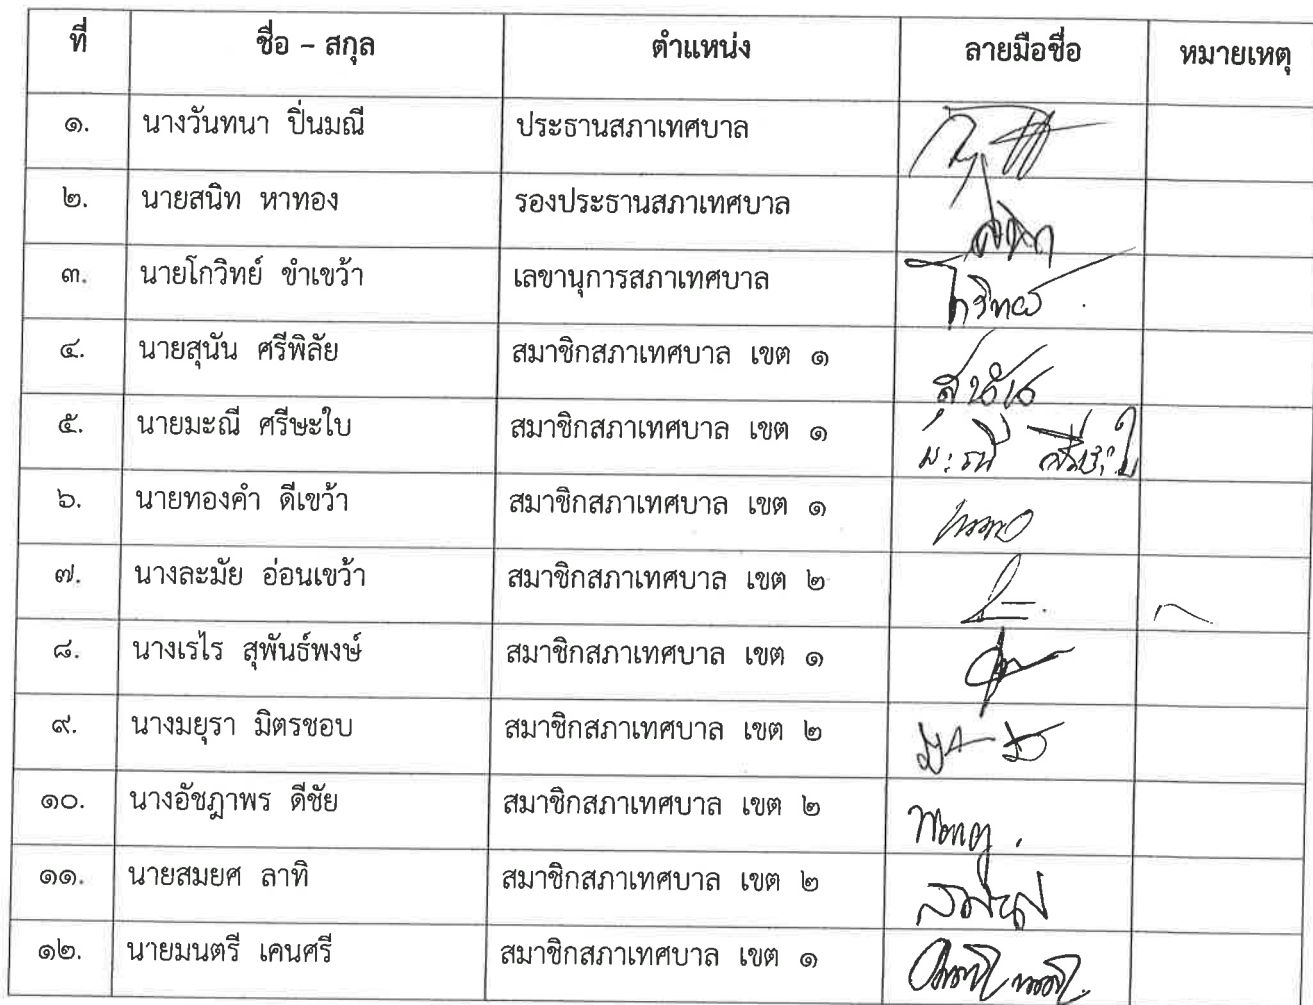 ที่ ชื่อ - สกุล ตำแหน่ง ลายมือชื่อ หมายเหตุ
๑. นางวันทนา ปิ่นมณี ประธานสภาเทศบาล
๒. นายสนิท หาทอง รองประธานสภาเทศบาล
๓. นายโกวิทย์ ขำเขว้า เลขานุการสภาเทศบาล โกวิทย์
๔. นายสุนัน ศรีพิลัย สมาชิกสภาเทศบาล เขต ๑ สุนัน
๕. นายมะณี ศรีษะใบ สมาชิกสภาเทศบาล เขต ๑ มะณี ศรีษะใบ
๖. นายทองคำ ดีเขว้า สมาชิกสภาเทศบาล เขต ๑
๗. นางละมัย อ่อนเขว้า สมาชิกสภาเทศบาล เขต ๒
๘. นางเรไร สุพันธ์พงษ์ สมาชิกสภาเทศบาล เขต ๑
๙. นางมยุรา มิตรชอบ สมาชิกสภาเทศบาล เขต ๒
๑๐. นางอัชฎาพร ดีชัย สมาชิกสภาเทศบาล เขต ๒
๑๑. นายสมยศ ลาทิ สมาชิกสภาเทศบาล เขต ๒
๑๒. นายมนตรี เคนศรี สมาชิกสภาเทศบาล เขต ๑